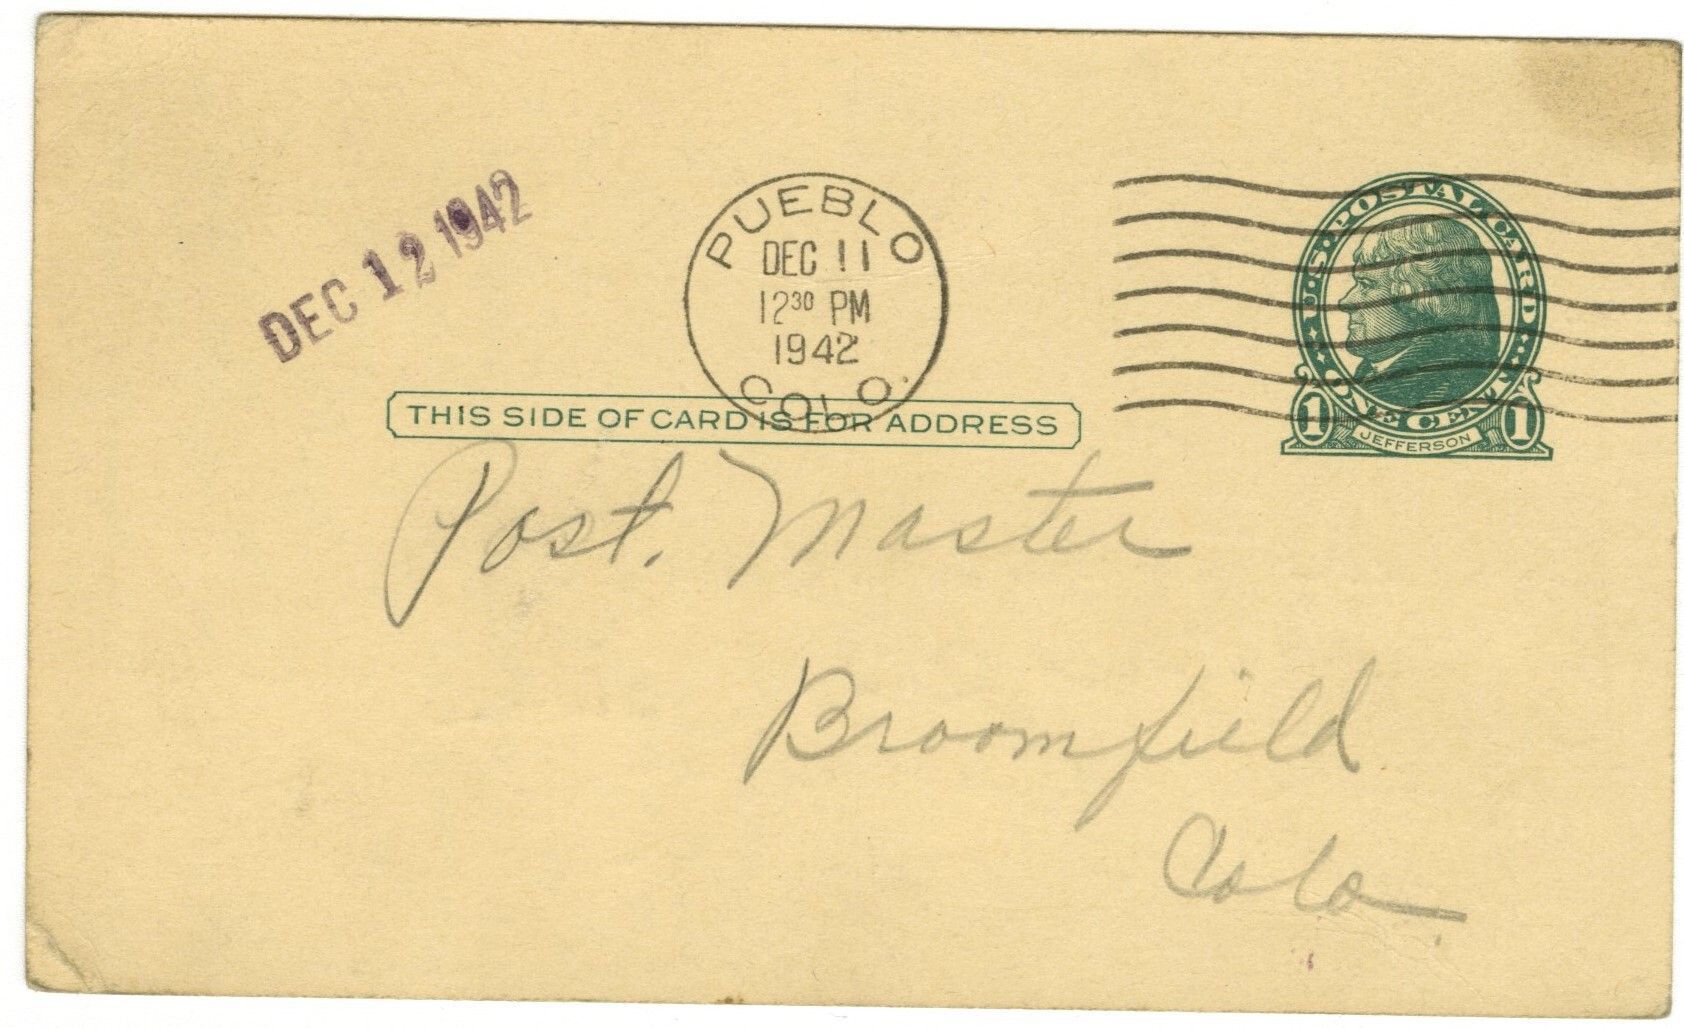 DEC 12 1942
PUEBLO
DEC 11
12 30 PM
1942
COLO.
U.S. POSTAL CARD
ONE CENT
1 JEFFERSON 1
THIS SIDE OF CARD IS FOR ADDRESS
Post. Master
Broomfield
Colo